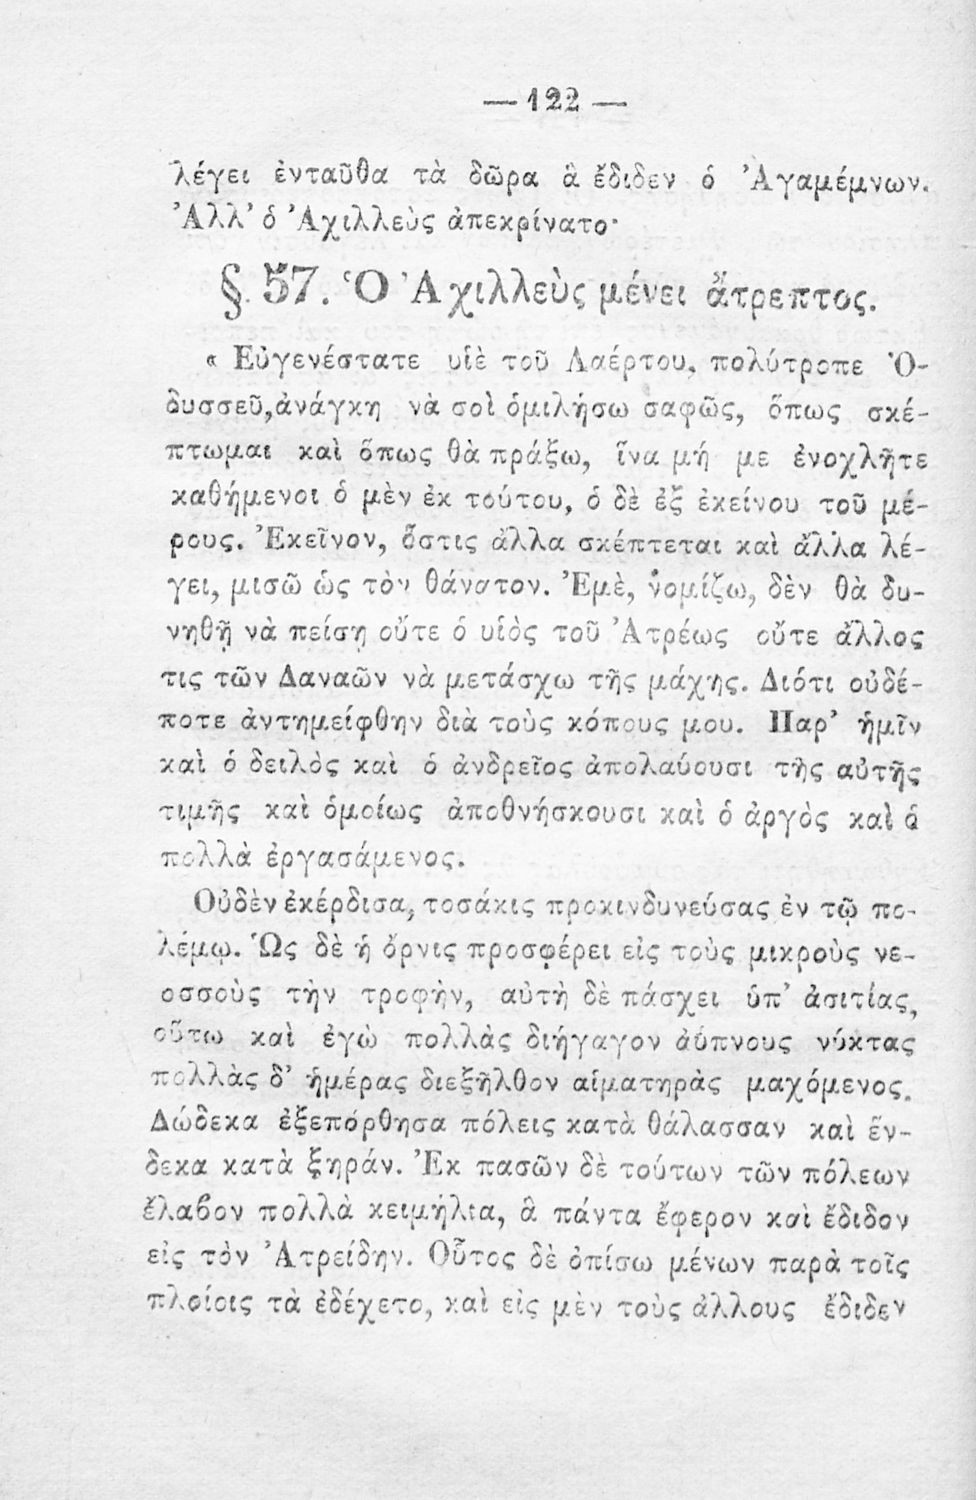 — 122 —
λέγει ἐνταῦθα τὰ δῶρα ἃ ἔδιδεν ὁ Ἀγαμέμνων.
Ἀλλ' ὁ Ἀχιλλεὺς ἀπεκρίνατο·
§. 57. Ὁ Ἀχιλλεὺς μένει ἄτρεπτος.
« Εὐγενέστατε υἱὲ τοῦ Λαέρτου, πολύτροπε Ὀ-
δυσσεῦ, ἀνάγκη νὰ σοὶ ὁμιλήσω σαφῶς, ὅπως σκέ-
πτωμαι καὶ ὅπως θὰ πράξω, ἵνα μή με ἐνοχλῆτε
καθήμενοι ὁ μὲν ἐκ τούτου, ὁ δὲ ἐξ ἐκείνου τοῦ μέ-
ρους. Ἐκεῖνον, ὅστις ἄλλα σκέπτεται καὶ ἄλλα λέ-
γει, μισῶ ὡς τὸν θάνατον. Ἐμὲ, νομίζω, δὲν θὰ δυ-
νηθῇ νὰ πείσῃ οὔτε ὁ υἱὸς τοῦ Ἀτρέως οὔτε ἄλλος
τις τῶν Δαναῶν νὰ μετάσχω τῆς μάχης. Διότι οὐδέ-
ποτε ἀντημείφθην διὰ τοὺς κόπους μου. Παρ' ἡμῖν
καὶ ὁ δειλὸς καὶ ὁ ἀνδρεῖος ἀπολαύουσι τῆς αὐτῆς
τιμῆς καὶ ὁμοίως ἀποθνήσκουσι καὶ ὁ ἀργὸς καὶ ὁ
πολλὰ ἐργασάμενος.
Οὐδὲν ἐκέρδισα, τοσάκις προκινδυνεύσας ἐν τῷ πο-
λέμῳ. Ὡς δὲ ἡ ὄρνις προσφέρει εἰς τοὺς μικροὺς νε-
οσσοὺς τὴν τροφὴν, αὐτὴ δὲ πάσχει ὑπ' ἀσιτίας,
οὕτω καὶ ἐγὼ πολλὰς διήγαγον ἀύπνους νύκτας
πολλὰς δ' ἡμέρας διεξῆλθον αἱματηρὰς μαχόμενος.
Δώδεκα ἐξεπόρθησα πόλεις κατὰ θάλασσαν καὶ ἕν-
δεκα κατὰ ξηράν. Ἐκ πασῶν δὲ τούτων τῶν πόλεων
ἔλαβον πολλὰ κειμήλια, ἃ πάντα ἔφερον καὶ ἔδιδον
εἰς τὸν Ἀτρείδην. Οὗτος δὲ ὀπίσω μένων παρὰ τοῖς
πλοίοις τὰ ἐδέχετο, καὶ εἰς μὲν τοὺς ἄλλους ἔδιδεν